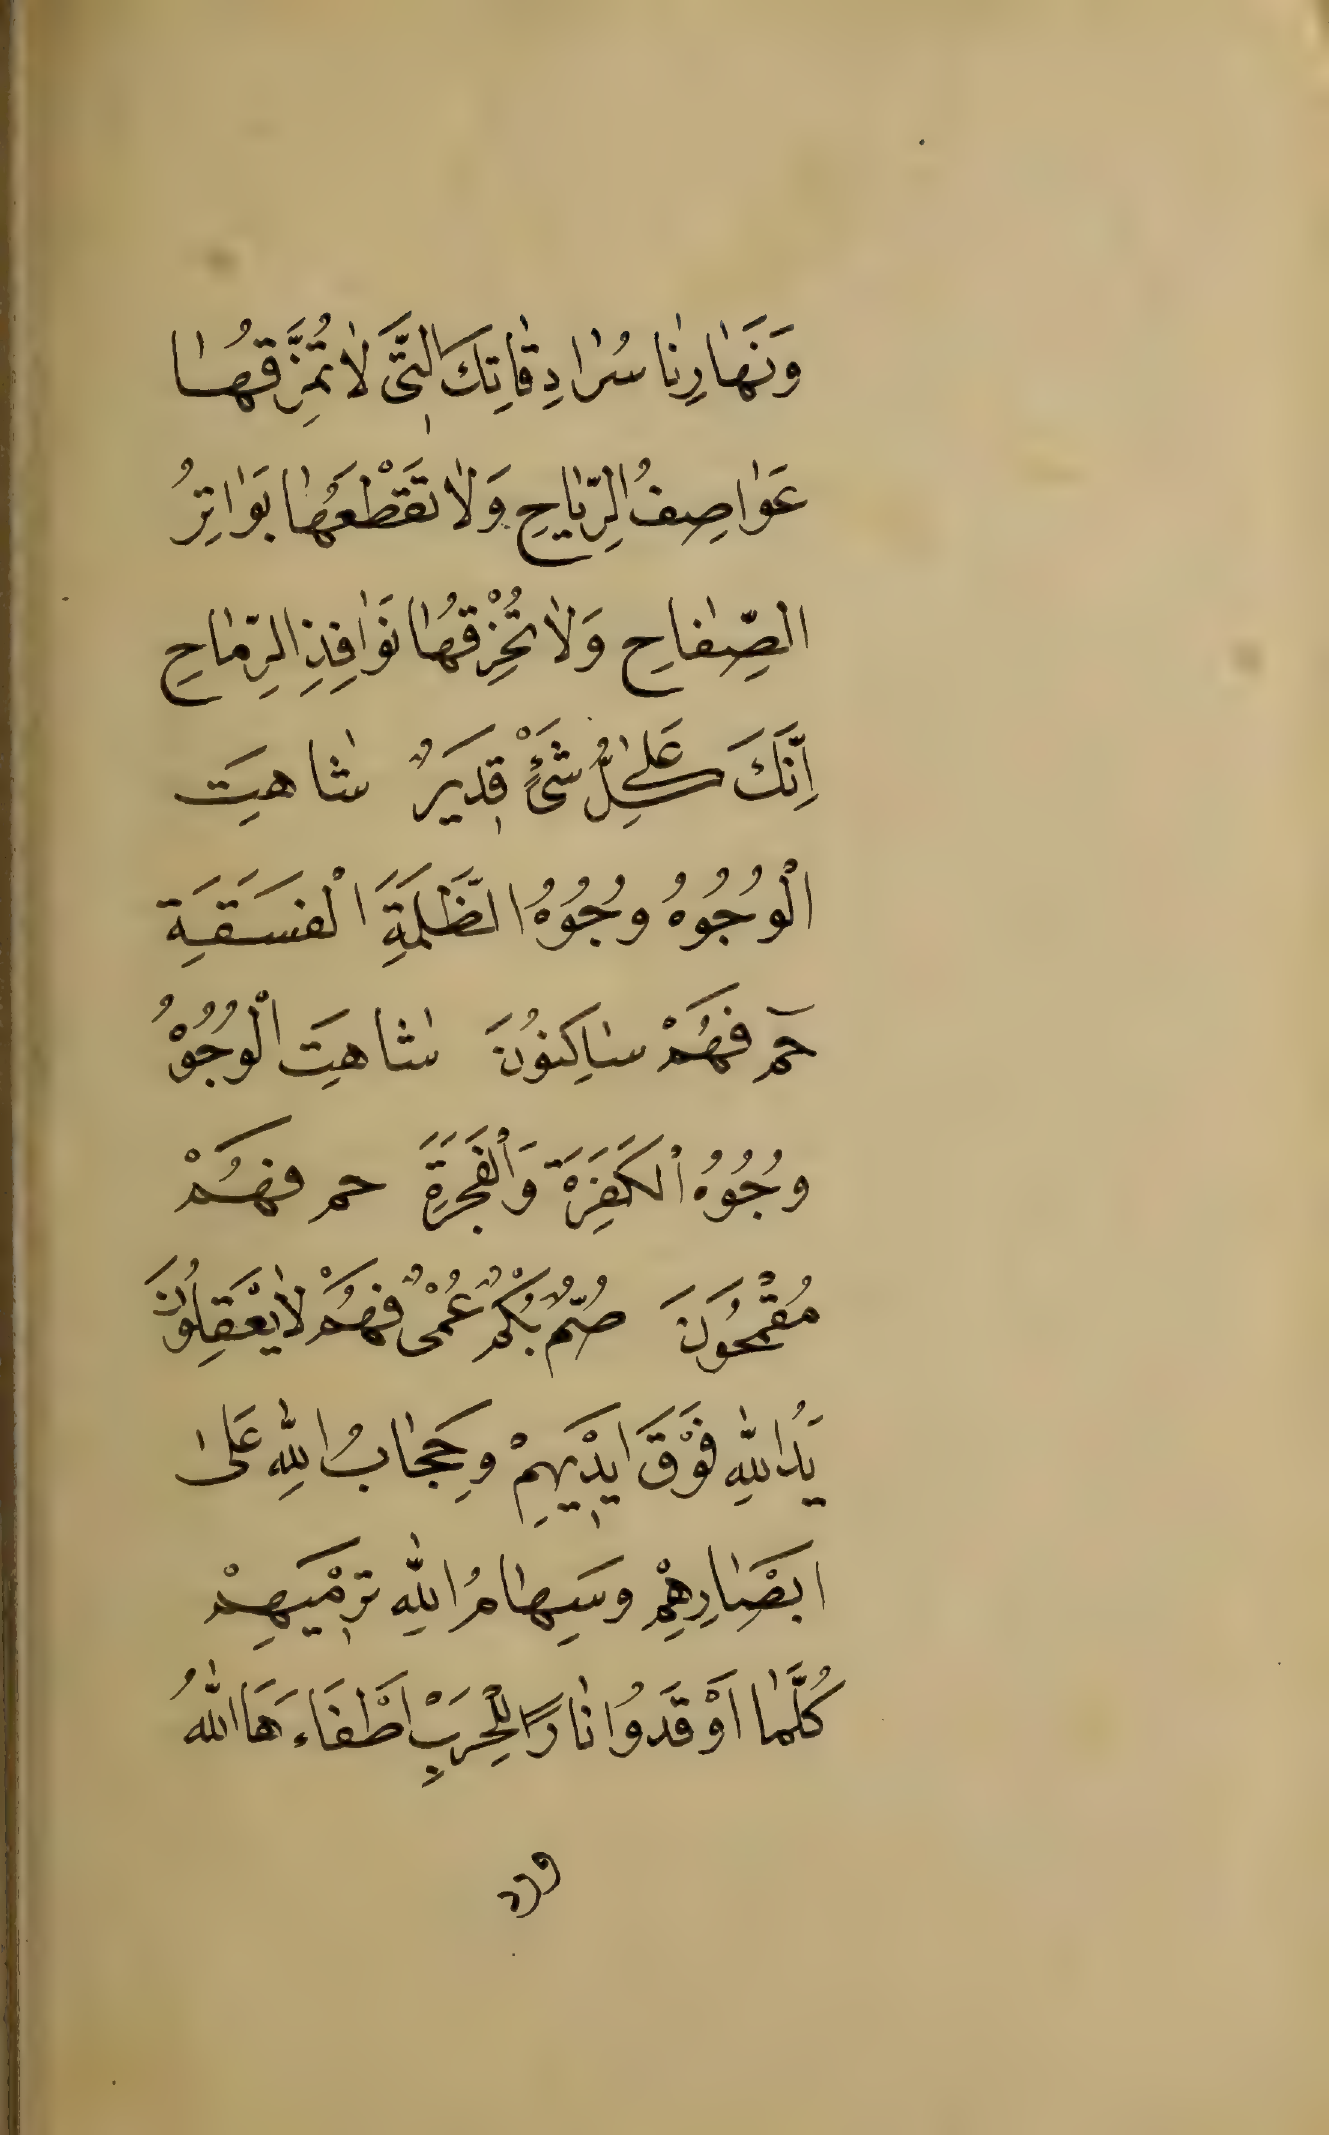 وَنَهٰارِنٰا سُرٰادِقٰاتِكَ الَّتٖى لٰا تُمَزِّقُهٰا
عَوٰاصِفُ الرِّيٰاحِ وَلٰا تَقْطَعُهٰا بَوٰاتِرُ
الصِّفٰاحِ وَلٰا تُخْرِقُهٰا نَوٰافِذِ الرِّمٰاحِ
اِنَّكَ عَلٰى كُلِّ شَىْءٍ قَدٖيرٌ شٰاهَتِ
الْوُجُوهُ وُجُوهُ الظَّلَمَةِ الْفَسَقَةِ
حٓمٓ فَهُمْ سٰاكِنُونَ شٰاهَتِ الْوُجُوْهُ
وُجُوُهُ الْكَفَرَةِ وَالْفَجَرَةِ حم فَهُمْ
مُقْمَحُونَ صُمٌّ بُكْمٌ عُمْىٌ فَهُمْ لٰا يَعْقِلُونَ
يَدُ اللّٰهِ فَوْقَ اَيْدٖيهِمْ وَحِجٰابُ اللّٰهِ عَلىٰ
اَبْصٰارِهِمْ وَسِهٰامُ اللّٰهِ تَرْمٖيهِمْ
كُلَّمٰا اَوْقَدُوا نٰارًا لِلْحَرْبِ اَطْفَاءَهَا اللّٰهُ